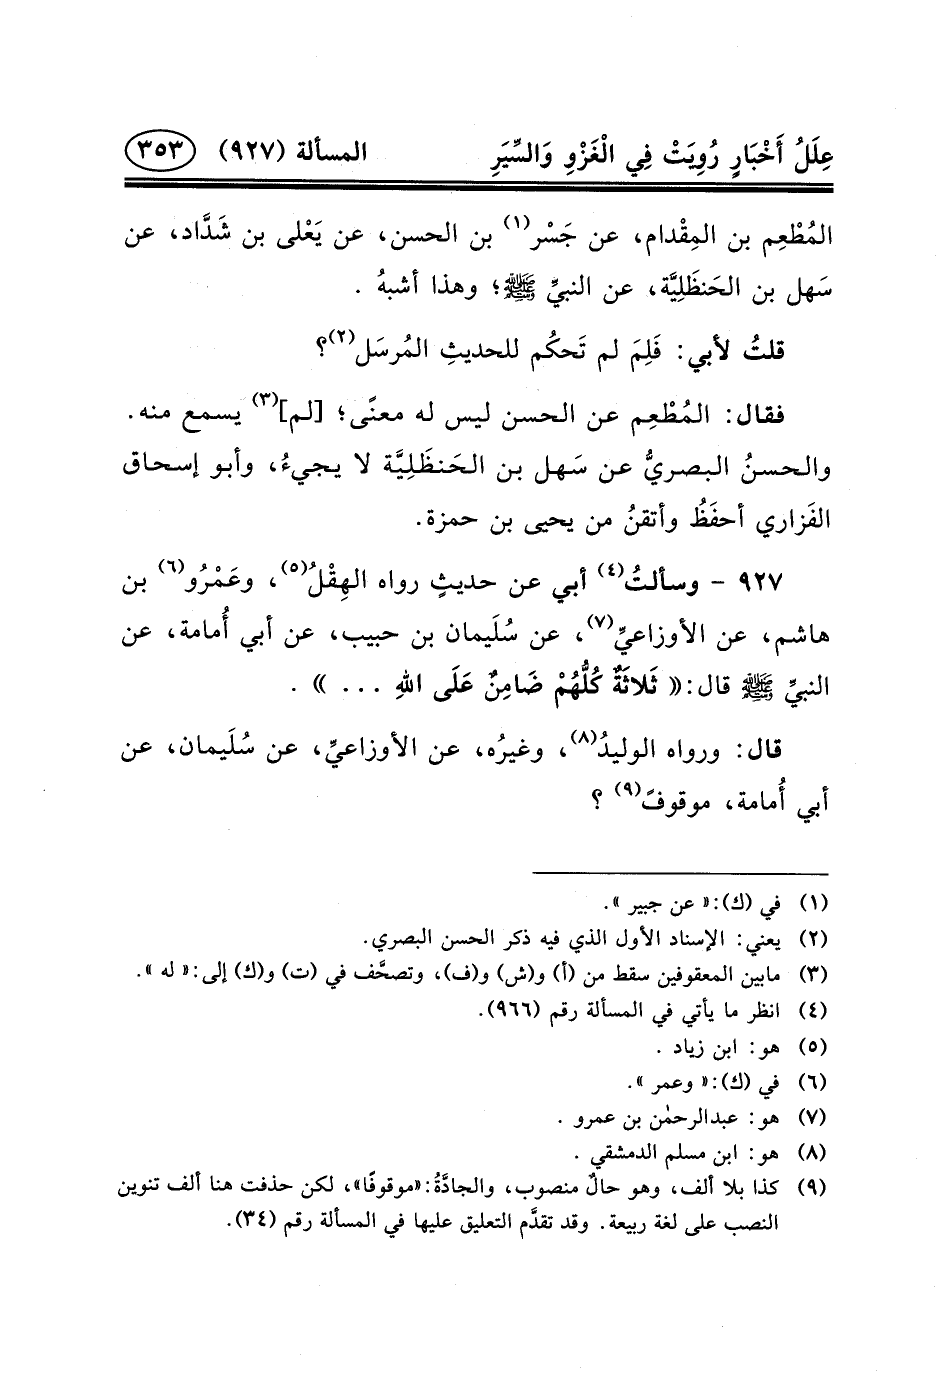 عِلَلُ أَخْبَارٍ رُوِيَتْ فِي الْغَزْوِ وَالسِّيَرِ المسألة (٩٢٧) ٣٥٣
المُطْعِم بن المِقْدام، عن جَسْر(١) بن الحسن، عن يَعْلى بن شَدَّاد، عن
سَهل بن الحَنظَلِيَّة، عن النبيِّ ﷺ؛ وهذا أشبهُ .
قلتُ لأبي: فَلِمَ لم تَحكُم للحديثِ المُرسَل(٢)؟
فقال: المُطْعِم عن الحسن ليس له معنًى؛ [لم](٣) يسمع منه.
والحسنُ البصريُّ عن سَهل بن الحَنظَلِيَّة لا يجيءُ، وأبو إسحاق
الفَزاري أحفَظُ وأتقنُ من يحيى بن حمزة.
٩٢٧ - وسألتُ(٤) أبي عن حديثٍ رواه الهِقْلُ(٥)، وعَمْرُو(٦) بن
هاشم، عن الأوزاعيِّ(٧)، عن سُلَيمان بن حبيب، عن أبي أُمامة، عن
النبيِّ ﷺ قال:« ثَلاثَةٌ كُلُّهُمْ ضَامِنٌ عَلَى اللهِ ... » .
قال: ورواه الوليدُ(٨)، وغيرُه، عن الأوزاعيِّ، عن سُلَيمان، عن
أبي أُمامة، موقوفً(٩) ؟
(١) في (ك):« عن جبير ».
(٢) يعني: الإسناد الأول الذي فيه ذكر الحسن البصري.
(٣) مابين المعقوفين سقط من (أ) و(ش) و(ف)، وتصحَّف في (ت) و(ك) إلى:« له ».
(٤) انظر ما يأتي في المسألة رقم (٩٦٦).
(٥) هو: ابن زياد .
(٦) في (ك):« وعمر ».
(٧) هو: عبدالرحمٰن بن عمرو .
(٨) هو: ابن مسلم الدمشقي .
(٩) كذا بلا ألف، وهو حالٌ منصوب، والجادَّةُ:«موقوفًا»، لكن حذفت هنا ألف تنوين
النصب على لغة ربيعة. وقد تقدَّم التعليق عليها في المسألة رقم (٣٤).